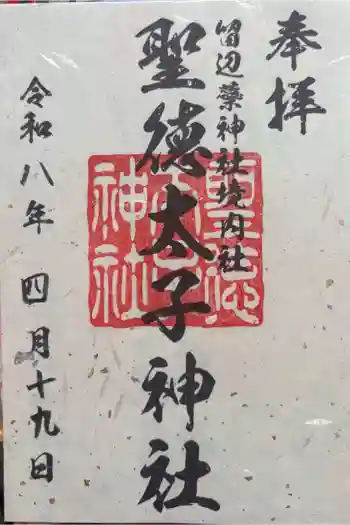 奉拝
留辺蘂神社境内社
聖徳太子神社
聖徳
太子
神社
令和八年 四月十九日